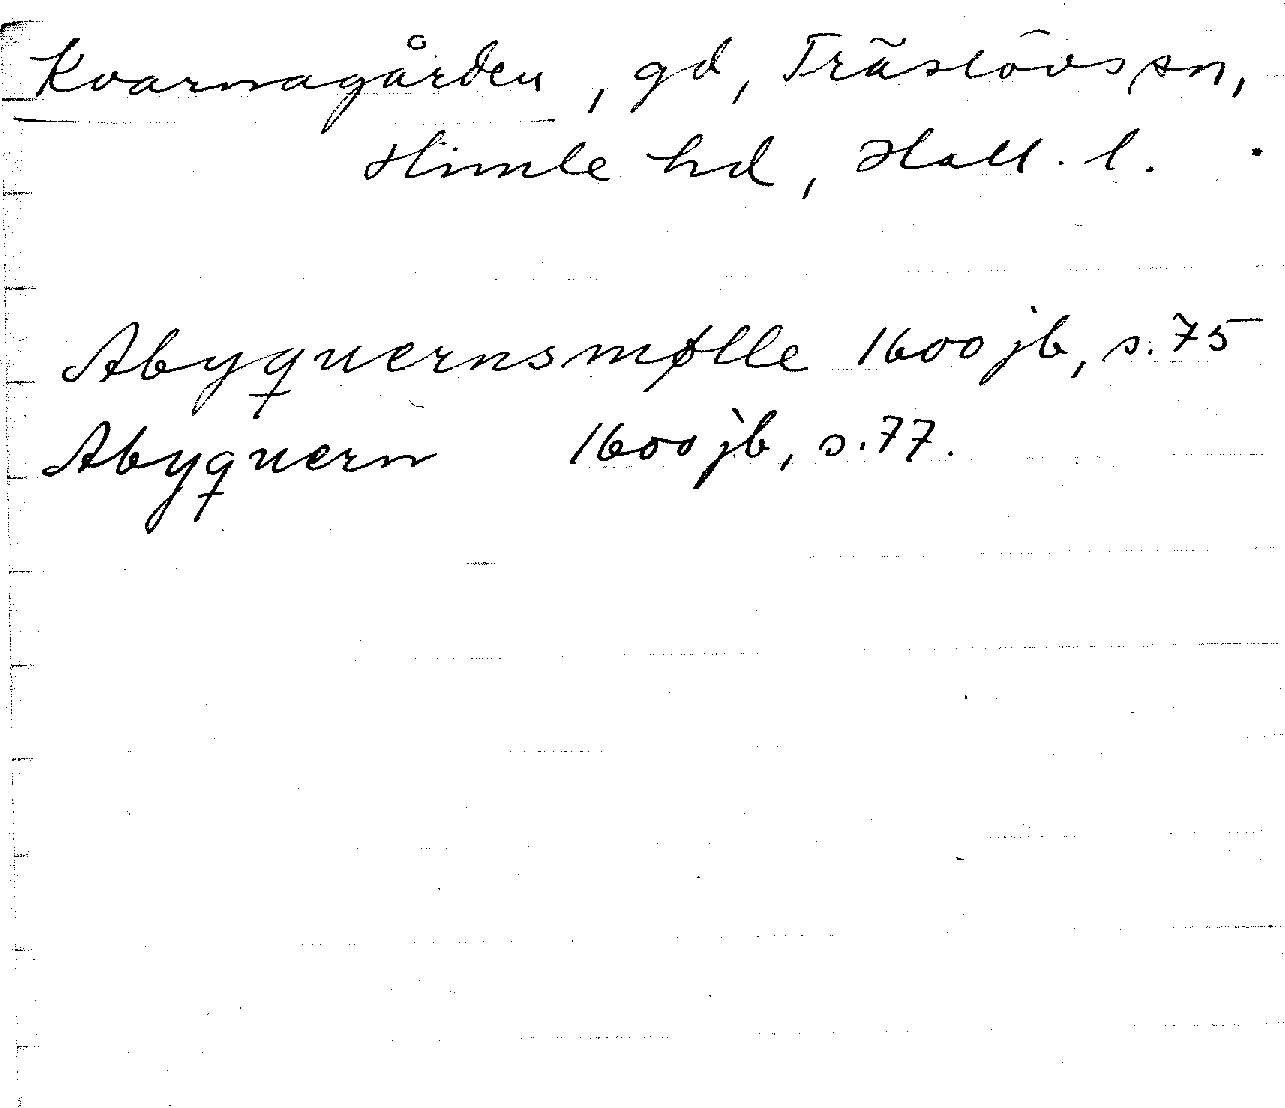 Kvarnagården, gd, Träslövs sn,
Himle hd, Hall. l.
Abyquernsmølle 1600 jb, s. 75
Abyquern 1600 jb, s. 77.